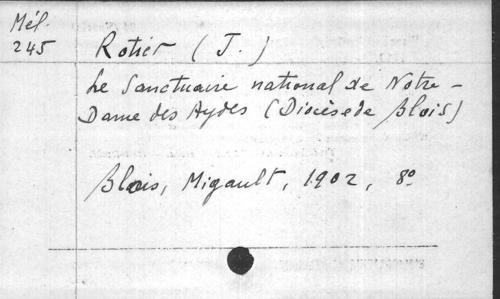 Mél.
245
Rotier (J.)
Le Sanctuaire national de Notre-
Dame des Aydes (Diocèse de Blois)
Blois, Migault, 1902, 8º